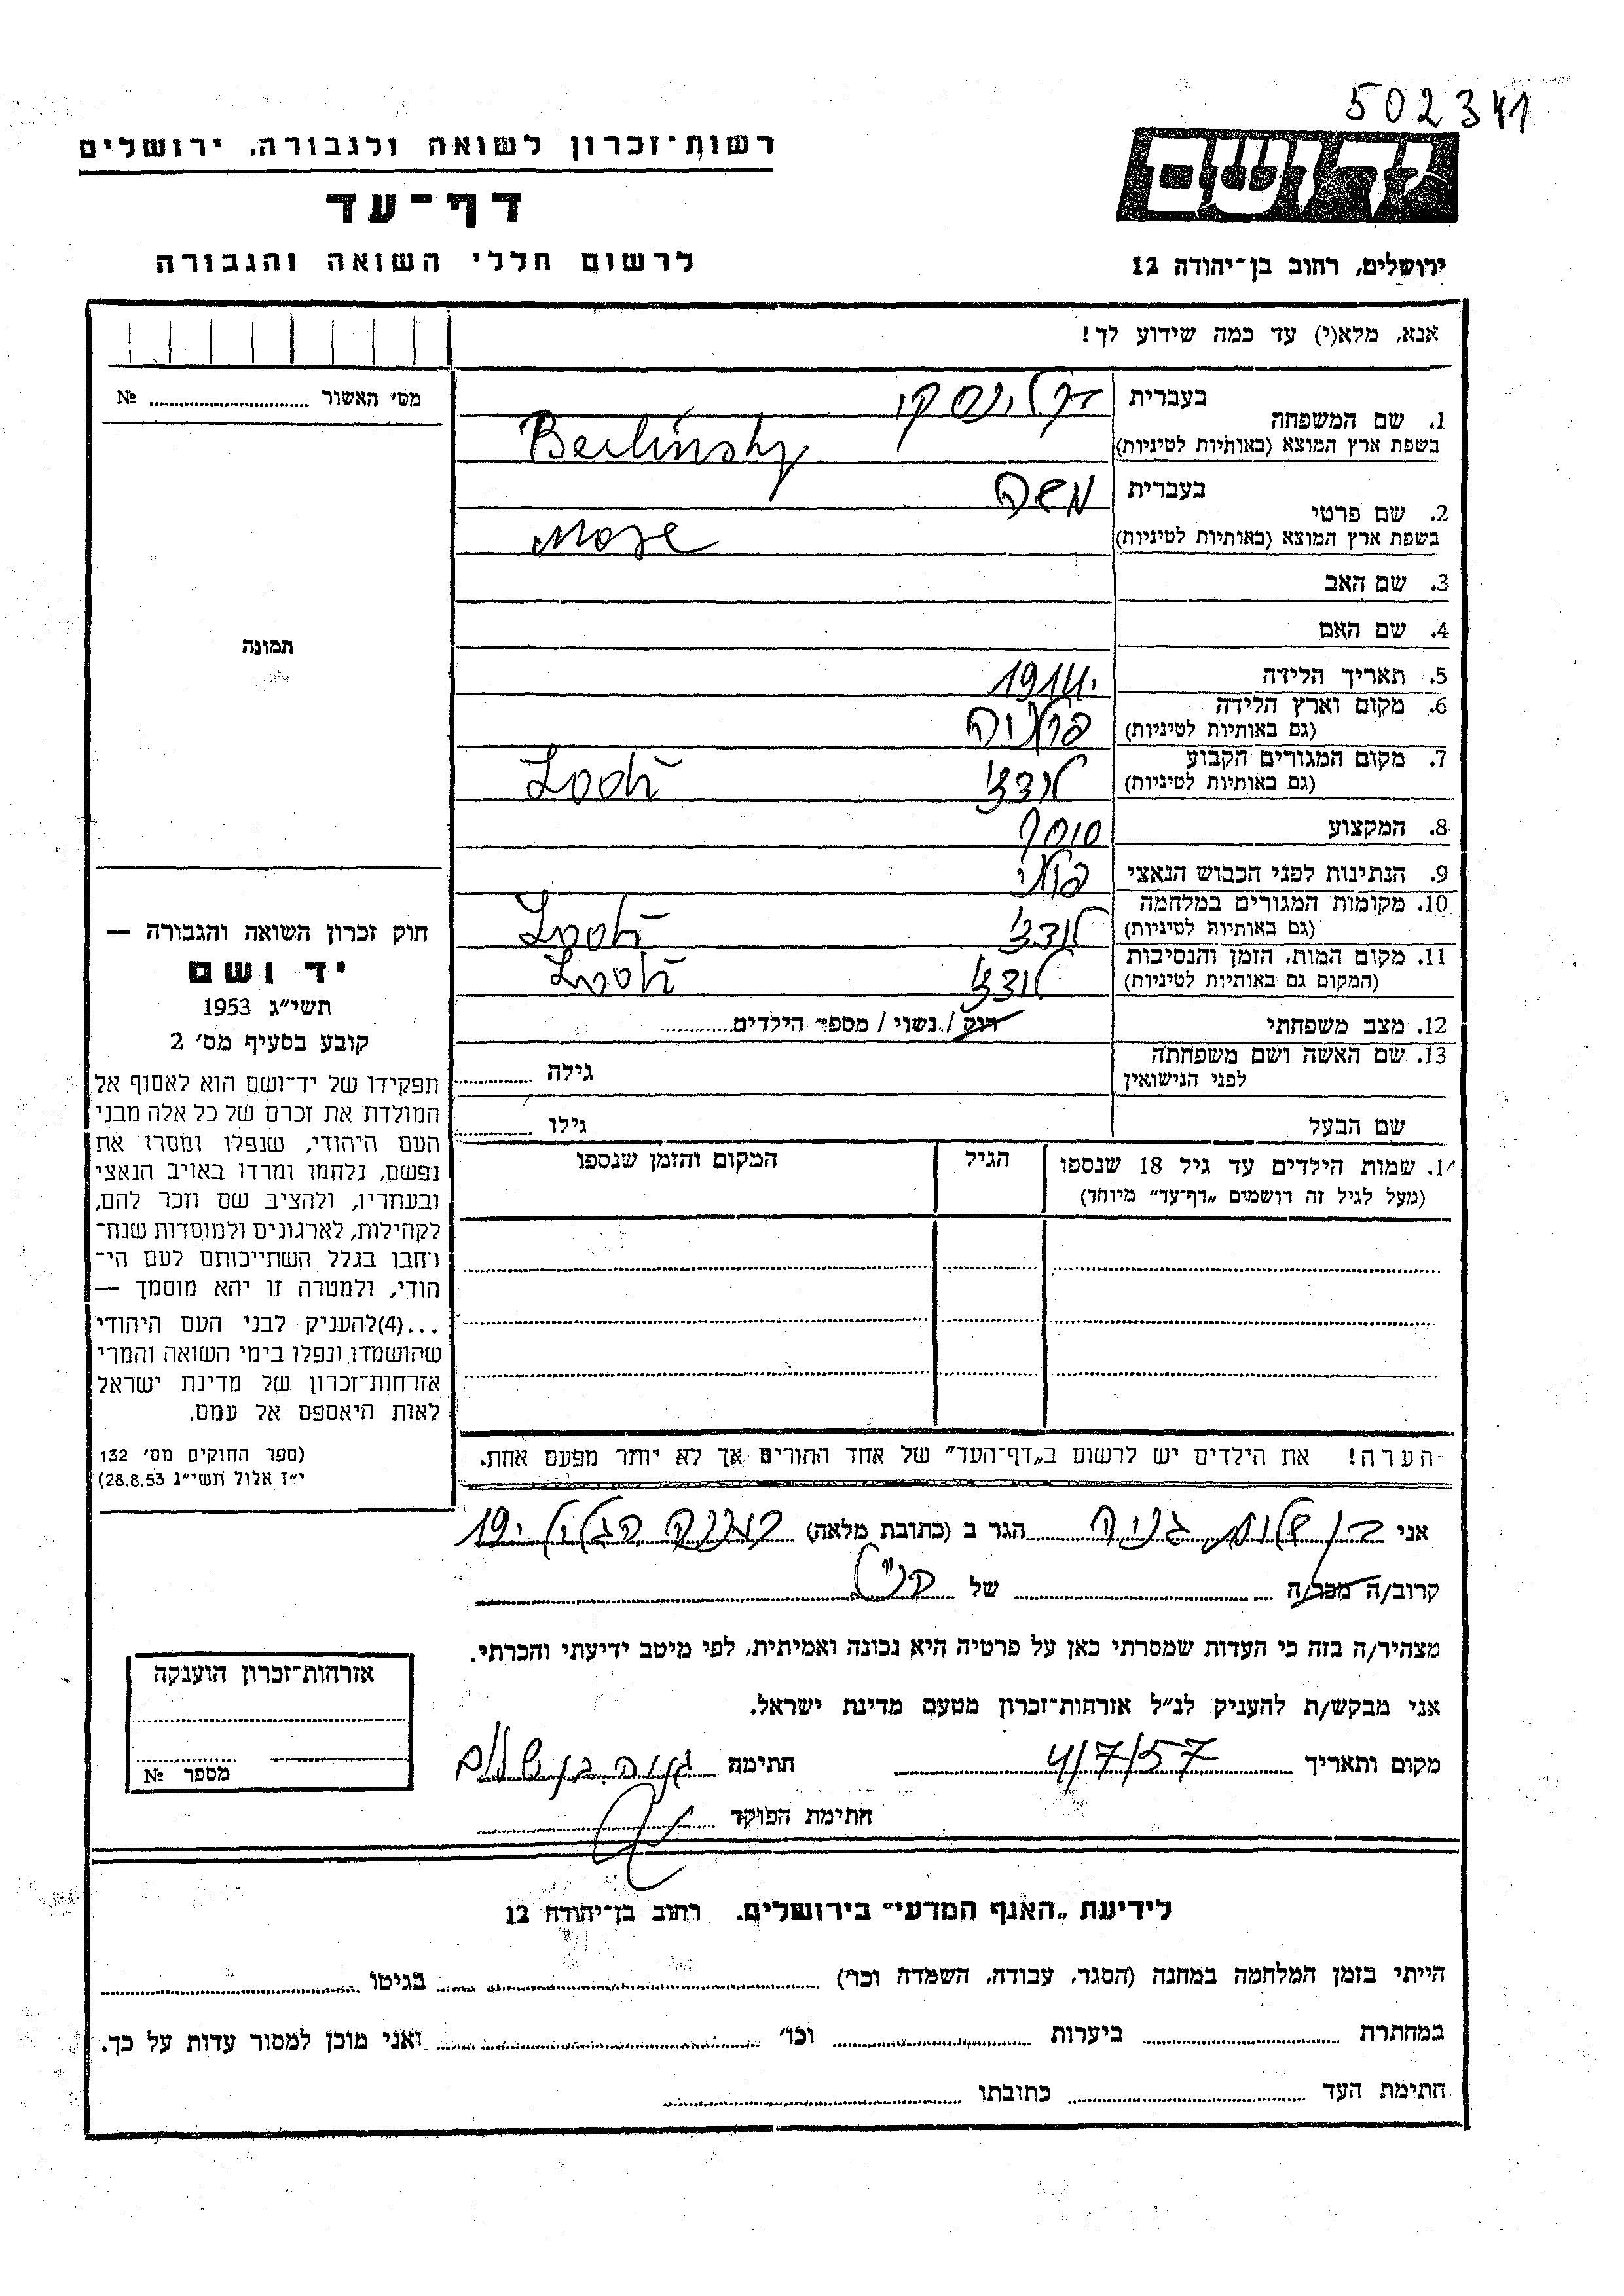 502341
רשות-זכרון לשואה ולגבורה, ירושלים
דף-עד
לרשום חללי השואה והגבורה
ידושם
ירושלים, רחוב בן-יהודה 12
אנא, מלא(י) עד כמה שידוע לך!
מס' האשור № 
תמונה
חוק זכרון השואה והגבורה —
יד ושם
תשי"ג 1953
קובע בסעיף מס' 2
תפקידו של יד-ושם הוא לאסוף אל
המולדת את זכרם של כל אלה מבני
העם היהודי, שנפלו ומסרו את
נפשם, נלחמו ומרדו באויב הנאצי
ובעוזריו, ולהציב שם וזכר להם,
לקהילות, לארגונים ולמוסדות שנח-
רבו בגלל השתייכותם לעם הי-
הודי, ולמטרה זו יהא מוסמך —
...(4)להעניק לבני העם היהודי
שהושמדו ונפלו בימי השואה והמרי
אזרחות-זכרון של מדינת ישראל
לאות היאספם אל עמם.
(ספר החוקים מס' 132
י"ז אלול תשי"ג 28.8.53)
1. שם המשפחה בעברית ברלינסקי
בשפת ארץ המוצא (באותיות לטיניות) Berlinsky
2. שם פרטי בעברית משה
בשפת ארץ המוצא (באותיות לטיניות) Mose
3. שם האב
4. שם האם
5. תאריך הלידה 1914
6. מקום וארץ הלידה
(גם באותיות לטיניות)
7. מקום המגורים הקבוע לודז'
(גם באותיות לטיניות) Lodz
8. המקצוע סוחר
9. הנתינות לפני הכבוש הנאצי פולני
10. מקומות המגורים במלחמה לודז'
(גם באותיות לטיניות) Lodz
11. מקום המות, הזמן והנסיבות לודז'
(המקום גם באותיות לטיניות) Lodz
12. מצב משפחתי רוק / נשוי / מספר הילדים
13. שם האשה ושם משפחתה
לפני הנישואין גילה
שם הבעל גילו
1. שמות הילדים עד גיל 18 שנספו הגיל המקום והזמן שנספו
(מעל לגיל זה רושמים "דף-עד" מיוחד)
הערה! את הילדים יש לרשום ב"דף-העד" של אחד ההורים אך לא יותר מפעם אחת.
אני בן שלום הגר ב (כתובת מלאה)
קרוב/ה מכר/ה של הנ"ל
מצהיר/ה בזה כי העדות שמסרתי כאן על פרטיה היא נכונה ואמיתית, לפי מיטב ידיעתי והכרתי.
אני מבקש/ת להעניק לנ"ל אזרחות-זכרון מטעם מדינת ישראל.
מקום ותאריך 4/7/57 חתימה בן שלום
חתימת הפוקד
אזרחות-זכרון הוענקה
מספר №
לידיעת "האגף המדעי" בירושלים, רחוב בן-יהודה 12
הייתי בזמן המלחמה במחנה (הסגר, עבודה, השמדה וכו') בגיטו
במחתרת ביערות וכו' ואני מוכן למסור עדות על כך.
חתימת העד כתובתו